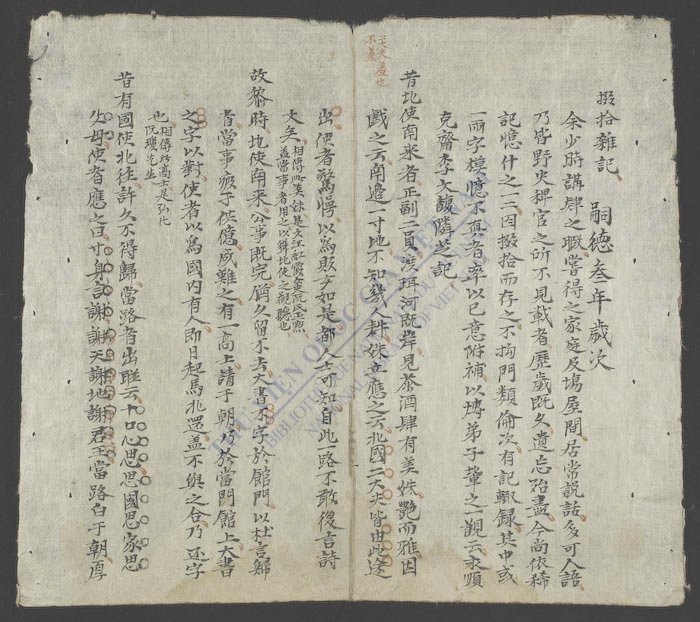 掇拾雜記 嗣德叁年歲次
余少時講肆之暇嘗得之家庭及場屋間居常説話多可人語
乃皆野史稗官之所不見載者歷歲既久遺忘殆盡今尚依稀
記憶什之一二因掇拾而存之不拘門類倫次有記輒録其中或
一兩字糢憶不真者率以己意附補以博弟子輩之一觀云永順
克齋李文馥隣芝記
昔北使南來者正副二員度珥河既岸見茶酒肆有美姝艷而雅因
戲之云南邊一寸地不知幾人耕姝立應之云北國二大夫皆由此途
二大夫蓋也
不是
出使者驚愕以爲販女如是都人士可知自此一路不敢復言詩
大年
故黎時北使南來公事既完猶久留不去大書不字於館門以杜言歸
者當事疲于供億咸難之有一高士請于朝乃於當門館上大書
之字以對使者以爲國内有人即日起馬北還蓋不與之合乃还字
也
相傳此高士是弘化
阮瓊先生
昔有國使北往許久不得歸當路者出聯云十口心思思國思家思
父母使者應之曰寸身言謝謝天謝地謝君王當路白于朝厚
THU VIEN QUOC GIA VIET NAM
BIBLIOTHEQUE NATIONALE DU VIETNAM
NATIONAL LIBRARY OF VIETNAM